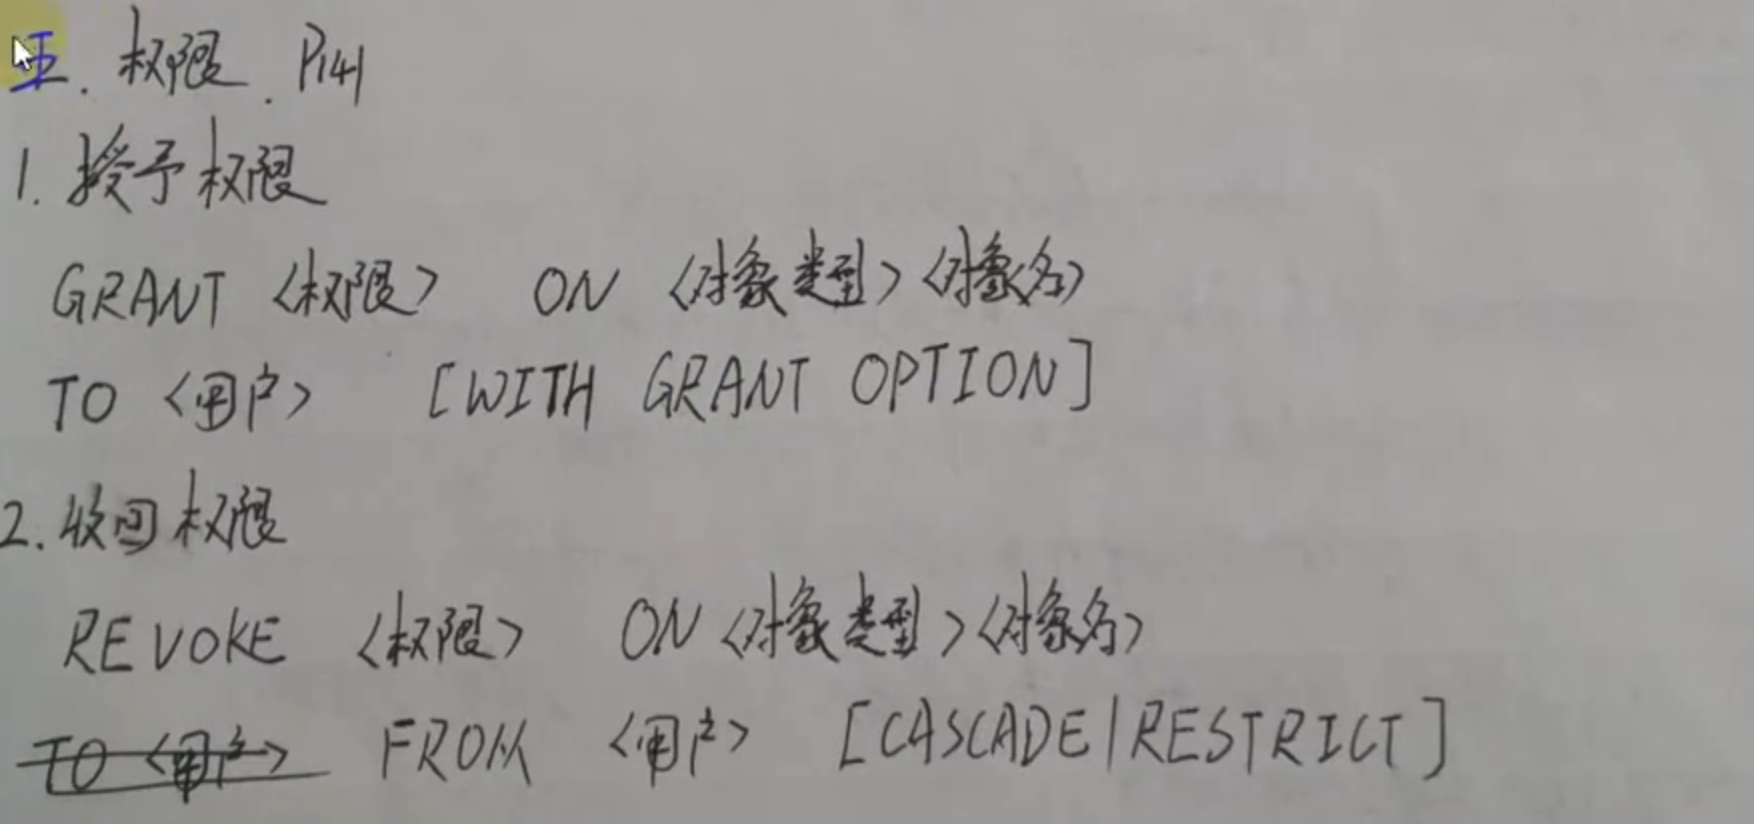 五. 权限. P141
1. 授予权限
GRANT <权限> ON <对象类型><对象名>
TO <用户> [WITH GRANT OPTION]
2. 收回权限
REVOKE <权限> ON <对象类型><对象名>
TO <用户> FROM <用户> [CASCADE|RESTRICT]